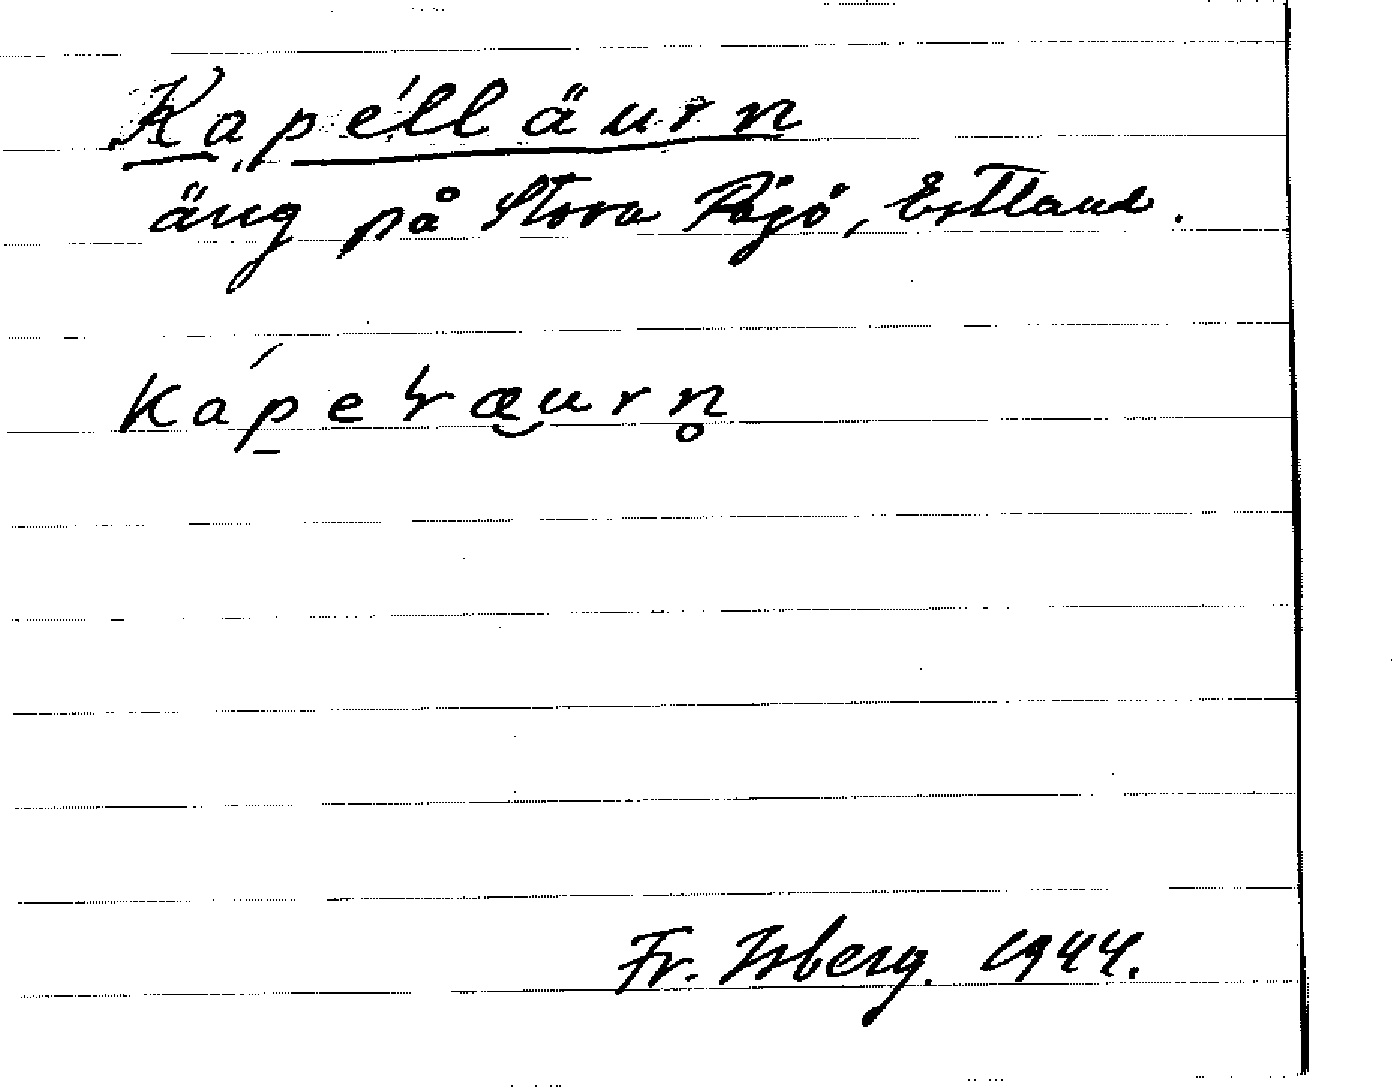 Kapélläurn
äng på Stora Rågö, Estland.
Fr. Isberg. 1944.